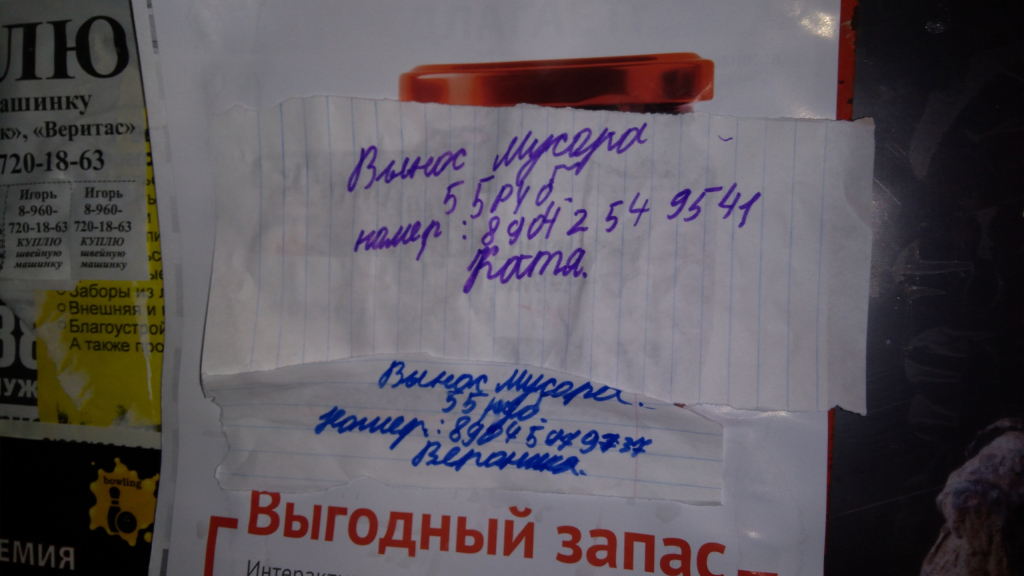 ЛЮ
ашинку
к», «Веритас»
720-18-63
Игорь
8-960-
720-18-63
КУПЛЮ
швейную
машинку
Игорь
8-960-
720-18-63
КУПЛЮ
швейную
машинку
Заборы из
Внешняя и
Благоустрой
А также про
bowling
ЕМИЯ
Вынос Мусора
55 руб.
номер: 8904 2 54 95 41
Катя.
Вынос Мусора.
55 руб.
Номер: 8904 5
Вероника.
Выгодный запас
Интеракти